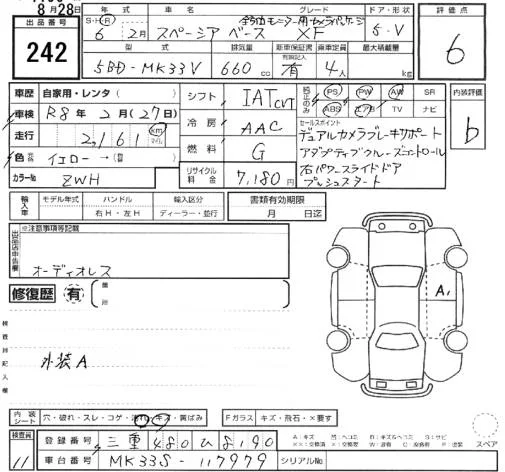 8月28日
出品番号
242
年式
車名
グレード
ドア・形状
評価点
S・H・R
全方位モニター用カメラパッケージ
6年2月
スペーシア ベース
XF
5・V
6
型式
排気量
新車保証書
乗車定員
最大積載量
有無記入
5BD-MK33V
660cc
有
4人
kg
車歴
自家用・レンタ
シフト
IAT CVT
純正のみ
PS
PW
AW
SR
内装評価
ABS
エアB
TV
ナビ
b
車検
R8年2月(27日)
冷房
AAC
セールスポイント
デュアルカメラブレーキサポート
走行
2,161
km
マイル
燃料
G
アダプティブクルーズコントロール
色
イエロー→
右パワースライドドア
カラーNo
ZWH
リサイクル料金
7,180円
プッシュスタート
輸入車
モデル年式
ハンドル
輸入区分
書類有効期限
右H・左H
ディーラー・並行
月
日迄
出品店申告欄
※注意事項等記載
オーディオレス
修復歴
有
箇所
A1
検査員記入欄
外装A
内装シート
穴・破れ・スレ・コゲ・汚れ・キズ・黄ばみ
Fガラス
キズ・飛石・×要す
検査員
11
登録番号
三重 480 ひ 8190
スペア
車台番号
MK33S-117979
シリアルNo